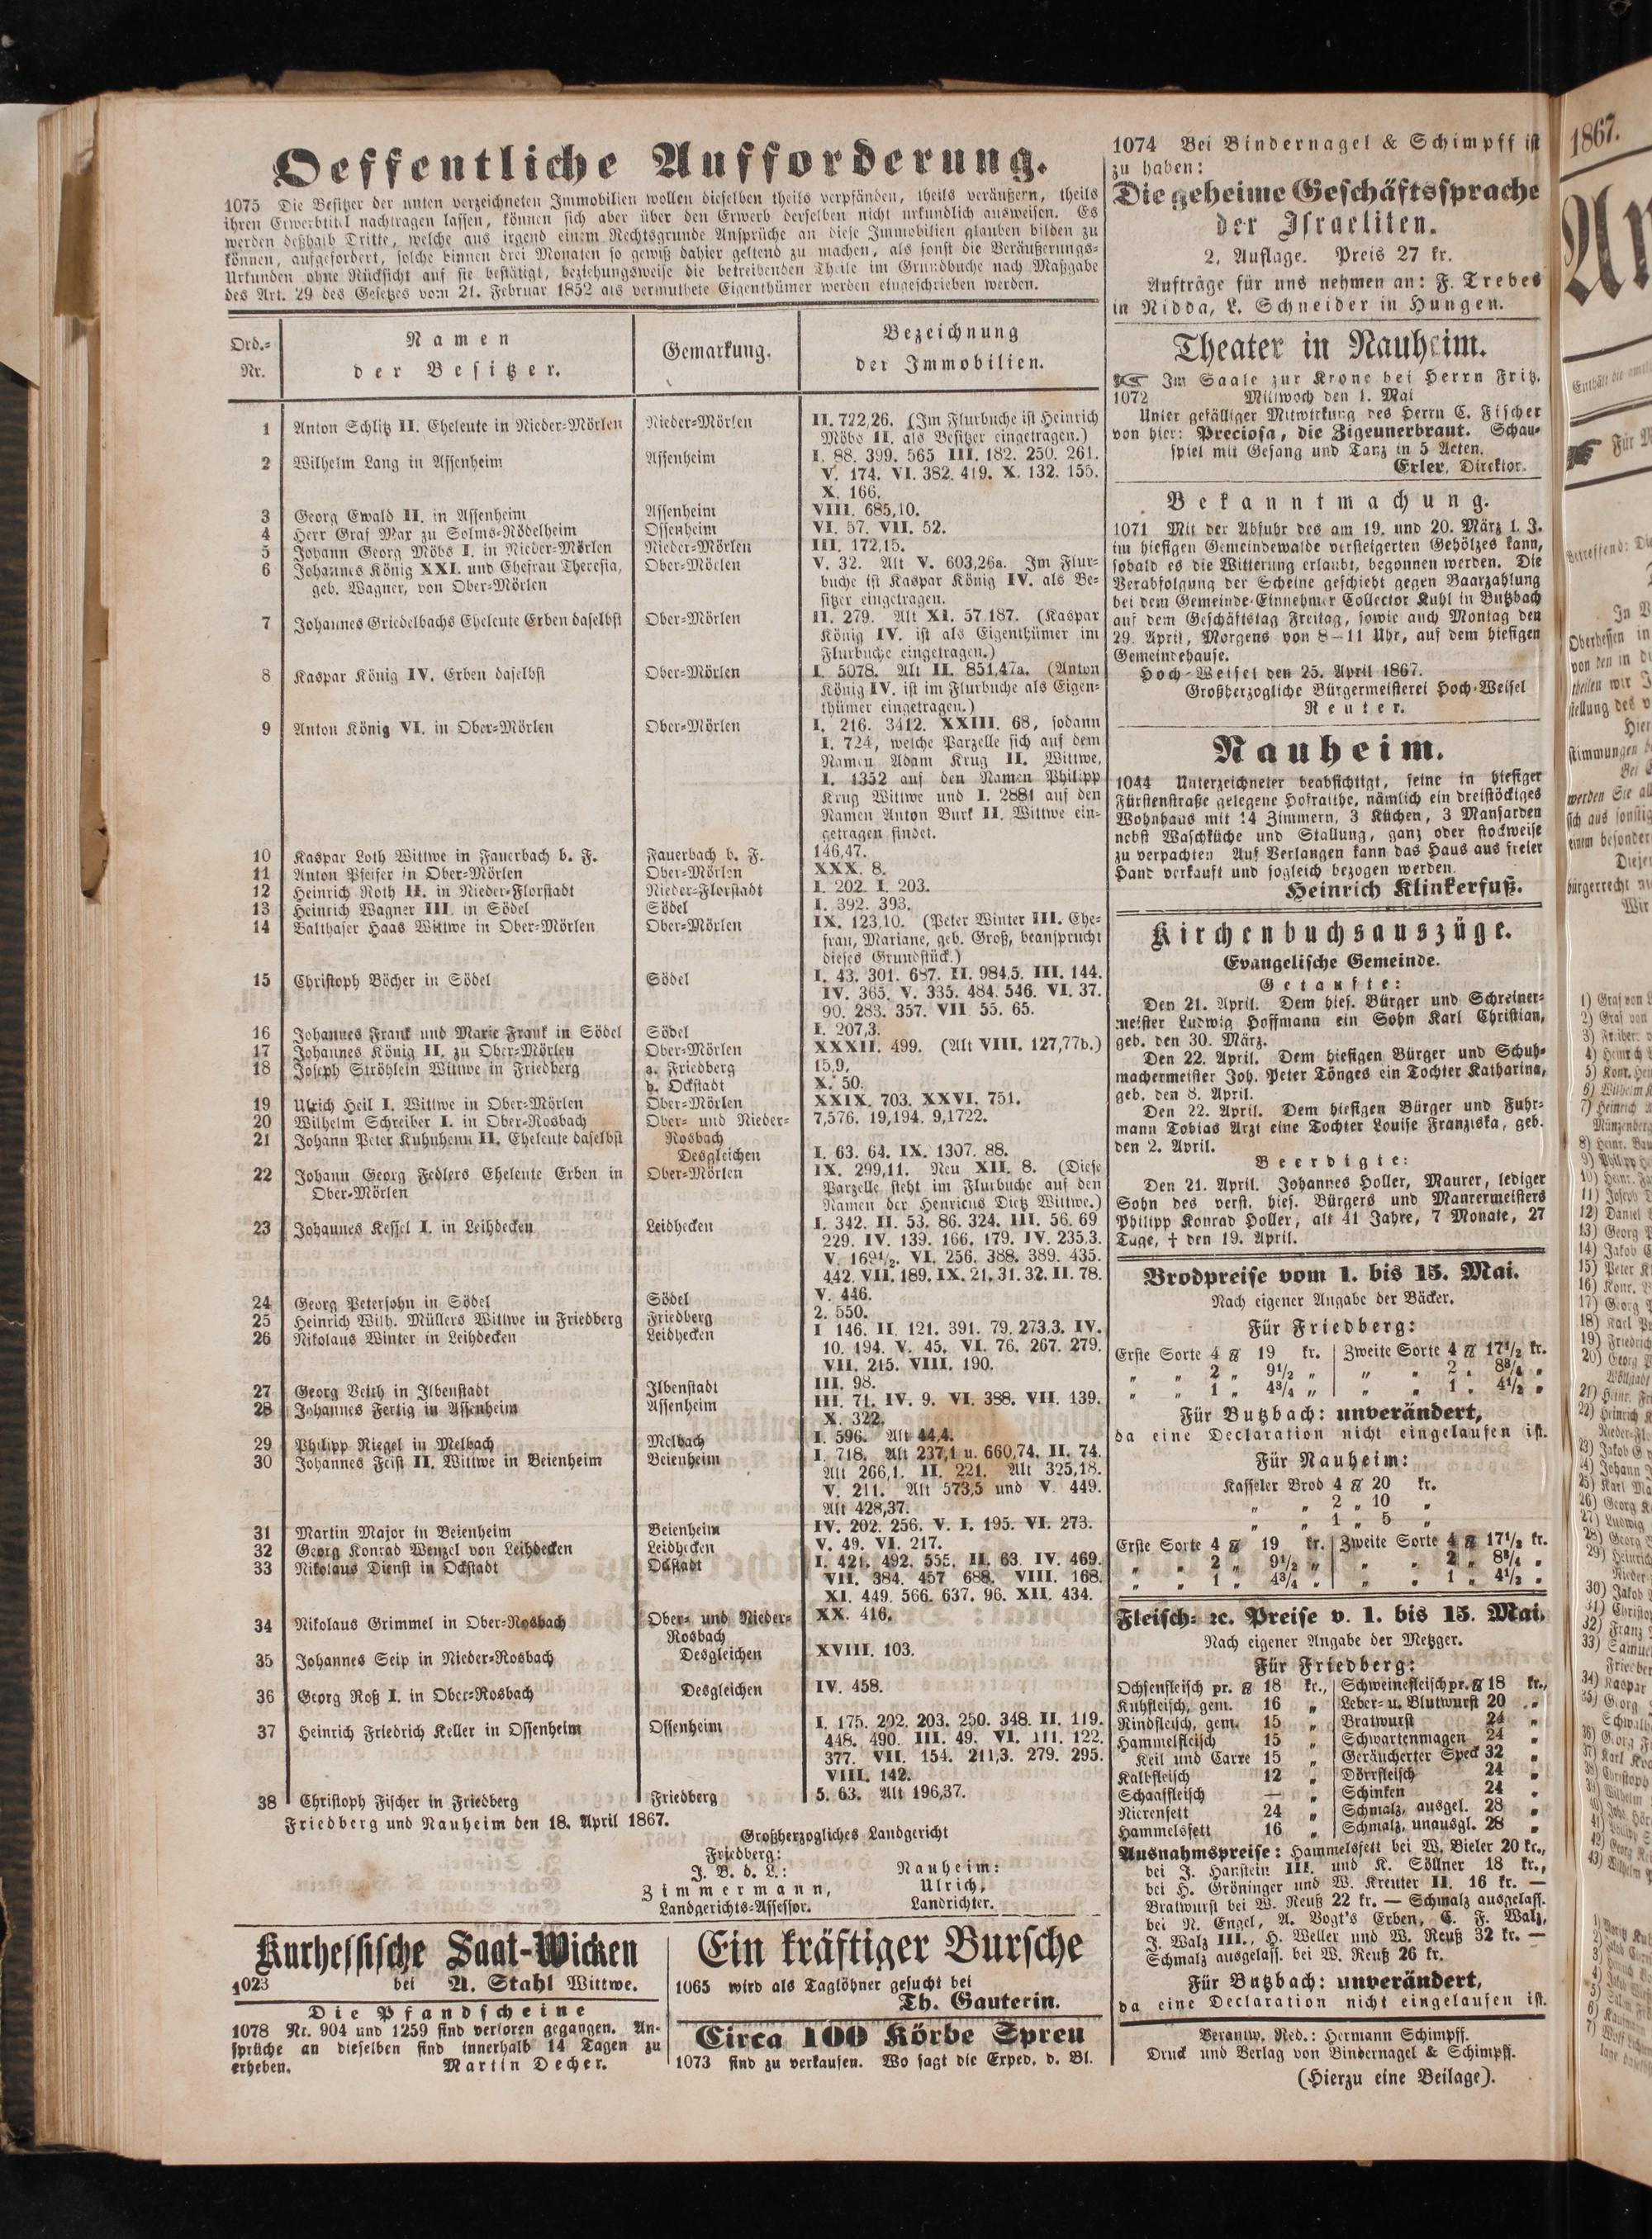 Oeffentliche Aufforderung.
1075 Die Besitzer der unten verzeichneten Immobilien wollen dieselben theils verpfänden, theils veräußern, theils
ihren Erwerbtitel nachtragen lassen, können sich aber über den Erwerb derselben nicht urkundlich ausweisen. Es
werden deßhalb Dritte, welche aus irgend einem Rechtsgrunde Ansprüche an diese Immobilien glauben bilden zu
können, aufgefordert, solche binnen drei Monaten so gewiß dahier geltend zu machen, als sonst die Veräußerungs-
Urkunden ohne Rücksicht auf sie bestätigt, beziehungsweise die betreibenden Theile im Grundbuche nach Maßgabe
des Art. 29 des Gesetzes vom 21. Februar 1852 als vermuthete Eigenthümer werden eingeschrieben werden.
Ord.-Nr. | Namen der Besitzer. | Gemarkung. | Bezeichnung der Immobilien.
1 Anton Schlitz II. Eheleute in Nieder-Mörlen | Nieder-Mörlen | II. 722,26. (Im Flurbuche ist Heinrich
Möbs II. als Besitzer eingetragen.)
2 Wilhelm Lang in Assenheim | Assenheim | I. 88. 399. 565 III. 182. 250. 261.
V. 174. VI. 382. 419. X. 132. 155.
X. 166.
3 Georg Ewald II. in Assenheim | Assenheim | VIII. 685,10.
4 Herr Graf Max zu Solms-Rödelheim | Ossenheim | VI. 57. VII. 52.
5 Johann Georg Möbs I. in Nieder-Mörlen | Nieder-Mörlen | III. 172,15.
6 Johannes König XXI. und Ehefrau Theresia, | Ober-Mörlen | V. 32. Alt V. 603,26a. Im Flur-
geb. Wagner, von Ober-Mörlen | buche ist Kaspar König IV. als Be-
sitzer eingetragen.
7 Johannes Griedelbachs Eheleute Erben daselbst | Ober-Mörlen | II. 279. Alt XI. 57,187. (Kaspar
König IV. ist als Eigenthümer im
Flurbuche eingetragen.)
8 Kaspar König IV. Erben daselbst | Ober-Mörlen | I. 5078. Alt II. 851,47a. (Anton
König IV. ist im Flurbuche als Eigen-
thümer eingetragen.)
9 Anton König VI. in Ober-Mörlen | Ober-Mörlen | I. 216. 3412. XXIII. 68, sodann
I. 724, welche Parzelle sich auf dem
Namen Adam Krug II. Wittwe,
I. 1352 auf den Namen Philipp
Krug Wittwe und I. 2881 auf den
Namen Anton Burk II. Wittwe ein-
getragen findet.
10 Kaspar Loth Wittwe in Fauerbach b. F. | Fauerbach b. F. | 146,47.
11 Anton Pfeifer in Ober-Mörlen | Ober-Mörlen | XXX. 8.
12 Heinrich Roth II. in Nieder-Florstadt | Nieder-Florstadt | I. 202. I. 203.
13 Heinrich Wagner III. in Södel | Södel | I. 392. 393.
14 Balthaser Haas Wittwe in Ober-Mörlen | Ober-Mörlen | IX. 123,10. (Peter Winter III. Ehe-
frau, Mariane, geb. Groß, beansprucht
dieses Grundstück.)
15 Christoph Böcher in Södel | Södel | I. 43. 301. 687. II. 984,5. III. 144.
IV. 365. V. 335. 484. 546. VI. 37.
90. 283. 357. VII 55. 65.
16 Johannes Frank und Marie Frank in Södel | Södel | I. 207,3.
17 Johannes König II. zu Ober-Mörlen | Ober-Mörlen | XXXII. 499. (Alt VIII. 127,77b.)
18 Joseph Ströhlein Wittwe in Friedberg | a. Friedberg | 15,9.
b. Ockstadt | X. 50.
19 Ulrich Heil I. Wittwe in Ober-Mörlen | Ober-Mörlen | XXIX. 703. XXVI. 751.
20 Wilhelm Schreiber I. in Ober-Rosbach | Ober- und Nieder-Rosbach | 7,576. 19,194. 9,1722.
21 Johann Peter Kuhnhenn II. Eheleute daselbst | Desgleichen | I. 63. 64. IX. 1307. 88.
22 Johann Georg Fedlers Eheleute Erben in | Ober-Mörlen | IX. 299,11. Neu XII. 8. (Diese
Ober-Mörlen | Parzelle steht im Flurbuche auf den
Namen der Henricus Dietz Wittwe.)
23 Johannes Kessel I. in Leihdecken | Leidhecken | I. 342. II. 53. 86. 324. III. 56. 69
229. IV. 139. 166. 179. IV. 235,3.
V. 169½. VI. 256. 388. 389. 435.
442. VII. 189. IX. 21. 31. 32. II. 78.
24 Georg Petersohn in Södel | Södel | V. 446.
25 Heinrich Wilh. Müllers Wittwe in Friedberg | Friedberg | 2. 550.
26 Nikolaus Winter in Leihdecken | Leidhecken | I 146. II. 121. 391. 79. 273,3. IV.
10. 194. V. 45. VI. 76. 267. 279.
VII. 215. VIII. 190.
27 Georg Veith in Ilbenstadt | Ilbenstadt | III. 98.
28 Johannes Fertig in Assenheim | Assenheim | III. 71. IV. 9. VI. 388. VII. 139.
X. 322.
29 Philipp Riegel in Melbach | Melbach | I. 596. Alt 44,4.
30 Johannes Feist II. Wittwe in Beienheim | Beienheim | I. 718. Alt 237,1 u. 660,74. II. 74.
Alt 266,1. II. 221. Alt 325,18.
V. 211. Alt 573,5 und V. 449.
Alt 428,37.
31 Martin Major in Beienheim | Beienheim | IV. 202. 256. V. I. 195. VI. 273.
32 Georg Konrad Wenzel von Leihdecken | Leidhecken | V. 49. VI. 217.
33 Nikolaus Dienst in Ockstadt | Ockstadt | I. 421. 492. 555. II. 63. IV. 469.
VII. 384. 457 688. VIII. 168.
XI. 449. 566. 637. 96. XII. 434.
34 Nikolaus Grimmel in Ober-Rosbach | Ober- und Nieder-Rosbach | XX. 416.
35 Johannes Seip in Nieder-Rosbach | Desgleichen | XVIII. 103.
36 Georg Roß I. in Ober-Rosbach | Desgleichen | IV. 458.
37 Heinrich Friedrich Keller in Ossenheim | Ossenheim | I. 175. 202. 203. 250. 348. II. 119.
448. 490. III. 49. VI. 111. 122.
377. VII. 154. 211,3. 279. 295.
VIII. 142.
38 Christoph Fischer in Friedberg | Friedberg | 5. 63. Alt 196,37.
Friedberg und Nauheim den 18. April 1867.
Großherzogliches Landgericht
Friedberg: Nauheim:
J. V. d. L.: Ulrich,
Zimmermann, Landrichter.
Landgerichts-Assessor.
Kurhessische Saat-Wicken
1023 bei A. Stahl Wittwe.
Die Pfandscheine
1078 Nr. 904 und 1259 sind verloren gegangen. An-
sprüche an dieselben sind innerhalb 14 Tagen zu
erheben. Martin Decher.
Ein kräftiger Bursche
1065 wird als Taglöhner gesucht bei
Th. Gauterin.
Circa 100 Körbe Spreu
1073 sind zu verkaufen. Wo sagt die Exped. d. Bl.
1074 Bei Bindernagel & Schimpff ist
zu haben:
Die geheime Geschäftssprache
der Israeliten.
2. Auflage. Preis 27 kr.
Aufträge für uns nehmen an: F. Trebes
in Nidda, L. Schneider in Hungen.
Theater in Nauheim.
Im Saale zur Krone bei Herrn Fritz.
1072 Mittwoch den 1. Mai
Unter gefälliger Mitwirkung des Herrn C. Fischer
von hier: Preciosa, die Zigeunerbraut. Schau-
spiel mit Gesang und Tanz in 5 Acten.
Erler, Direktor.
Bekanntmachung.
1071 Mit der Abfuhr des am 19. und 20. März l. J.
im hiesigen Gemeindewalde versteigerten Gehölzes kann,
sobald es die Witterung erlaubt, begonnen werden. Die
Verabfolgung der Scheine geschieht gegen Baarzahlung
bei dem Gemeinde-Einnehmer Collector Kuhl in Butzbach
auf dem Geschäftstag Freitag, sowie auch Montag den
29. April, Morgens von 8—11 Uhr, auf dem hiesigen
Gemeindehause.
Hoch-Weisel den 25. April 1867.
Großherzogliche Bürgermeisterei Hoch-Weisel
Reuter.
Nauheim.
1044 Unterzeichneter beabsichtigt, seine in hiesiger
Fürstenstraße gelegene Hofraithe, nämlich ein dreistöckiges
Wohnhaus mit 14 Zimmern, 3 Küchen, 3 Mansarden
nebst Waschküche und Stallung, ganz oder stockweise
zu verpachten Auf Verlangen kann das Haus aus freier
Hand verkauft und sogleich bezogen werden.
Heinrich Klinkerfuß.
Kirchenbuchsauszüge.
Evangelische Gemeinde.
Getaufte:
Den 21. April. Dem hies. Bürger und Schreiner-
meister Ludwig Hoffmann ein Sohn Karl Christian,
geb. den 30. März.
Den 22. April. Dem hiesigen Bürger und Schuh-
machermeister Joh. Peter Tönges ein Tochter Katharina,
geb. den 8. April.
Den 22. April. Dem hiesigen Bürger und Fuhr-
mann Tobias Arzt eine Tochter Louise Franziska, geb.
den 2. April.
Beerdigte:
Den 21. April. Johannes Holler, Maurer, lediger
Sohn des verst. hies. Bürgers und Maurermeisters
Philipp Konrad Holler, alt 41 Jahre, 7 Monate, 27
Tage, † den 19. April.
Brodpreise vom 1. bis 15. Mai.
Nach eigener Angabe der Bäcker.
Für Friedberg:
Erste Sorte 4 ℔ 19 kr. | Zweite Sorte 4 ℔ 17½ kr.
„ „ 2 „ 9½ „ | „ „ 2 „ 8¾ „
„ „ 1 „ 4¾ „ | „ „ 1 „ 4½ „
Für Butzbach: unverändert,
da eine Declaration nicht eingelaufen ist.
Für Nauheim:
Kasseler Brod 4 ℔ 20 kr.
„ „ 2 „ 10 „
„ „ 1 „ 5 „
Erste Sorte 4 ℔ 19 kr. | Zweite Sorte 4 ℔ 17½ kr.
„ „ 2 „ 9½ „ | „ „ 2 „ 8¾ „
„ „ 1 „ 4¾ „ | „ „ 1 „ 4½ „
Fleisch- ꝛc. Preise v. 1. bis 15. Mai.
Nach eigener Angabe der Metzger.
Für Friedberg:
Ochsenfleisch pr. ℔ 18 kr., | Schweinefleisch pr. ℔ 18 kr.,
Kuhfleisch, gem. 16 „ | Leber- u. Blutwurst 20 „
Rindfleisch, gem. 15 „ | Bratwurst 24 „
Hammelfleisch 15 „ | Schwartenmagen 24 „
Keil und Carre 15 „ | Geräucherter Speck 32 „
Kalbfleisch 12 „ | Dörrfleisch 24 „
Schaaffleisch — „ | Schinken 24 „
Nierenfett 24 „ | Schmalz, ausgel. 28 „
Hammelsfett 16 „ | Schmalz, unausgl. 28 „
Ausnahmspreise: Hammelsfett bei W. Bieler 20 kr.,
bei J. Hanstein III. und K. Söllner 18 kr.,
bei H. Gröninger und W. Kreuter II. 16 kr. —
Bratwurst bei W. Reuß 22 kr. — Schmalz ausgelass.
bei N. Engel, A. Vogt's Erben, C. F. Walz,
J. Walz III., H. Weller und W. Reuß 32 kr. —
Schmalz ausgelass. bei W. Reuß 26 kr.
Für Butzbach: unverändert,
da eine Declaration nicht eingelaufen ist.
Verantw. Red.: Hermann Schimpff.
Druck und Verlag von Bindernagel & Schimpff.
(Hierzu eine Beilage).
1867.